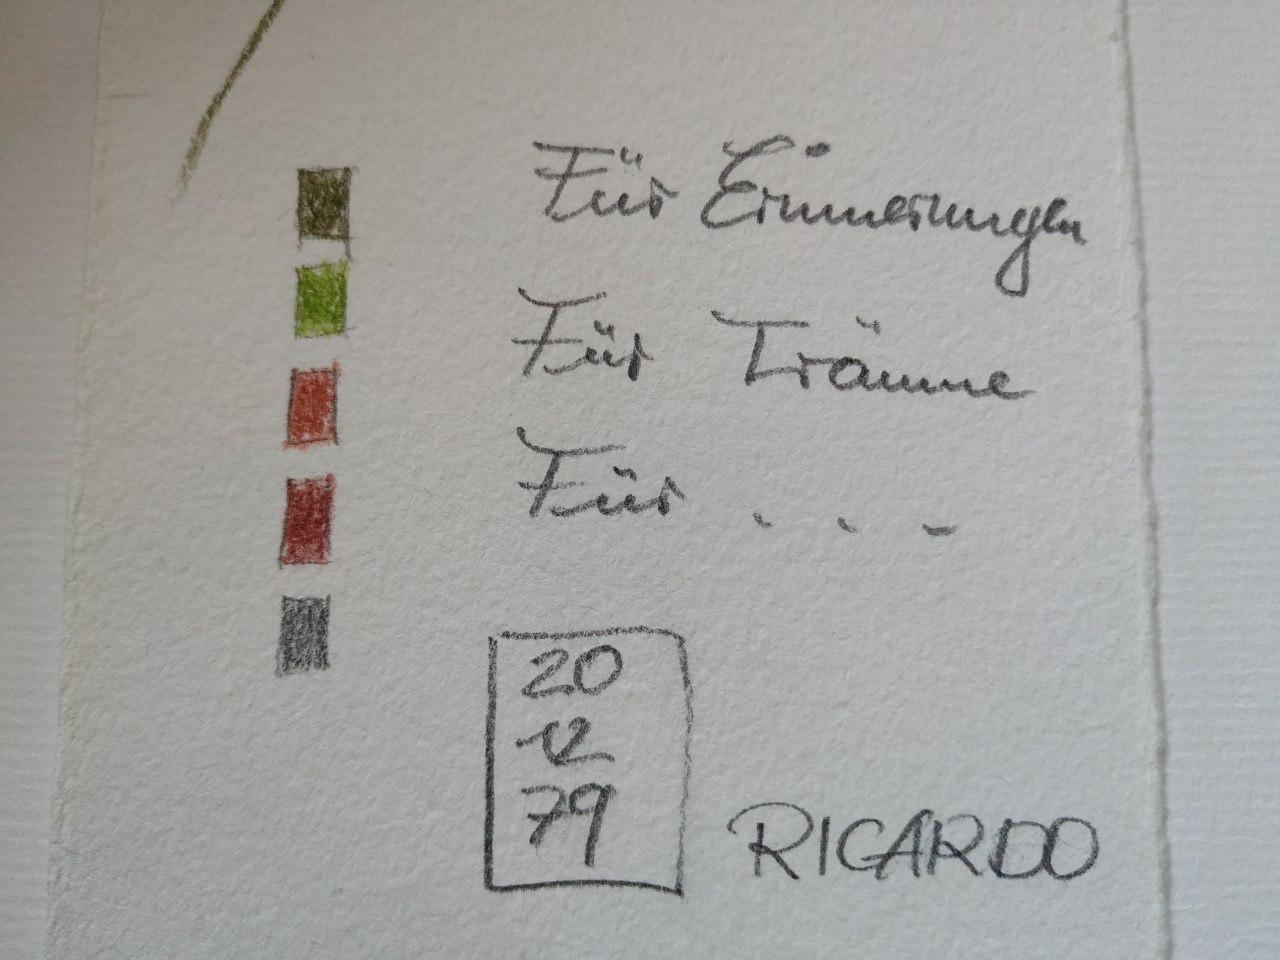 Für Erinnerungen
Für Träume
Für . . .
20
12
79
RICARDO